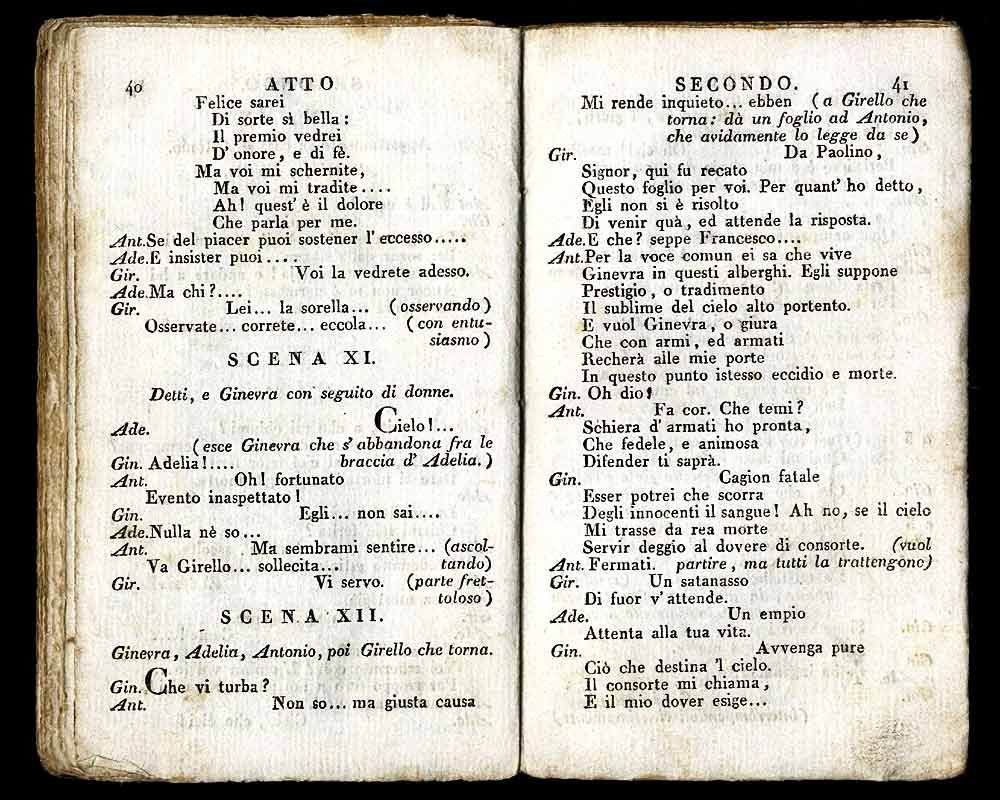 40 ATTO
Felice sarei
Di sorte sì bella :
Il premio vedrei
D' onore, e di fè.
Ma voi mi schernite,
Ma voi mi tradite....
Ah! quest' è il dolore
Che parla per me.
Ant. Se del piacer puoi sostener l' eccesso.....
Ade. E insister puoi....
Gir. Voi la vedrete adesso.
Ade. Ma chi?....
Gir. Lei... la sorella... (osservando)
Osservate... correte... eccola... (con entu-
siasmo)
SCENA XI.
Detti, e Ginevra con seguito di donne.
Ade. Cielo!...
(esce Ginevra che s' abbandona fra le
Gin. Adelia!.... braccia d' Adelia.)
Ant. Oh! fortunato
Evento inaspettato!
Gin. Egli... non sai....
Ade. Nulla nè so...
Ant. Ma sembrami sentire... (ascol-
Va Girello... sollecita... tando)
Gir. Vi servo. (parte fret-
toloso)
SCENA XII.
Ginevra, Adelia, Antonio, poi Girello che torna.
Gin. Che vi turba?
Ant. Non so... ma giusta causa
SECONDO. 41
Mi rende inquieto... ebben (a Girello che
torna: dà un foglio ad Antonio,
che avidamente lo legge da se)
Gir. Da Paolino,
Signor, quì fu recato
Questo foglio per voi. Per quant' ho detto,
Egli non si è risolto
Di venir quà, ed attende la risposta.
Ade. E che? seppe Francesco....
Ant. Per la voce comun ei sa che vive
Ginevra in questi alberghi. Egli suppone
Prestigio, o tradimento
Il sublime del cielo alto portento.
E vuol Ginevra, o giura
Che con armi, ed armati
Recherà alle mie porte
In questo punto istesso eccidio e morte.
Gin. Oh dio!
Ant. Fa cor. Che temi?
Schiera d' armati ho pronta,
Che fedele, e animosa
Difender ti saprà.
Gin. Cagion fatale
Esser potrei che scorra
Degli innocenti il sangue! Ah no, se il cielo
Mi trasse da rea morte
Servir deggio al dovere di consorte. (vuol
Ant. Fermati. partire, ma tutti la trattengono)
Gir. Un satanasso
Di fuor v' attende.
Ade. Un empio
Attenta alla tua vita.
Gin. Avvenga pure
Ciò che destina 'l cielo.
Il consorte mi chiama,
E il mio dover esige...